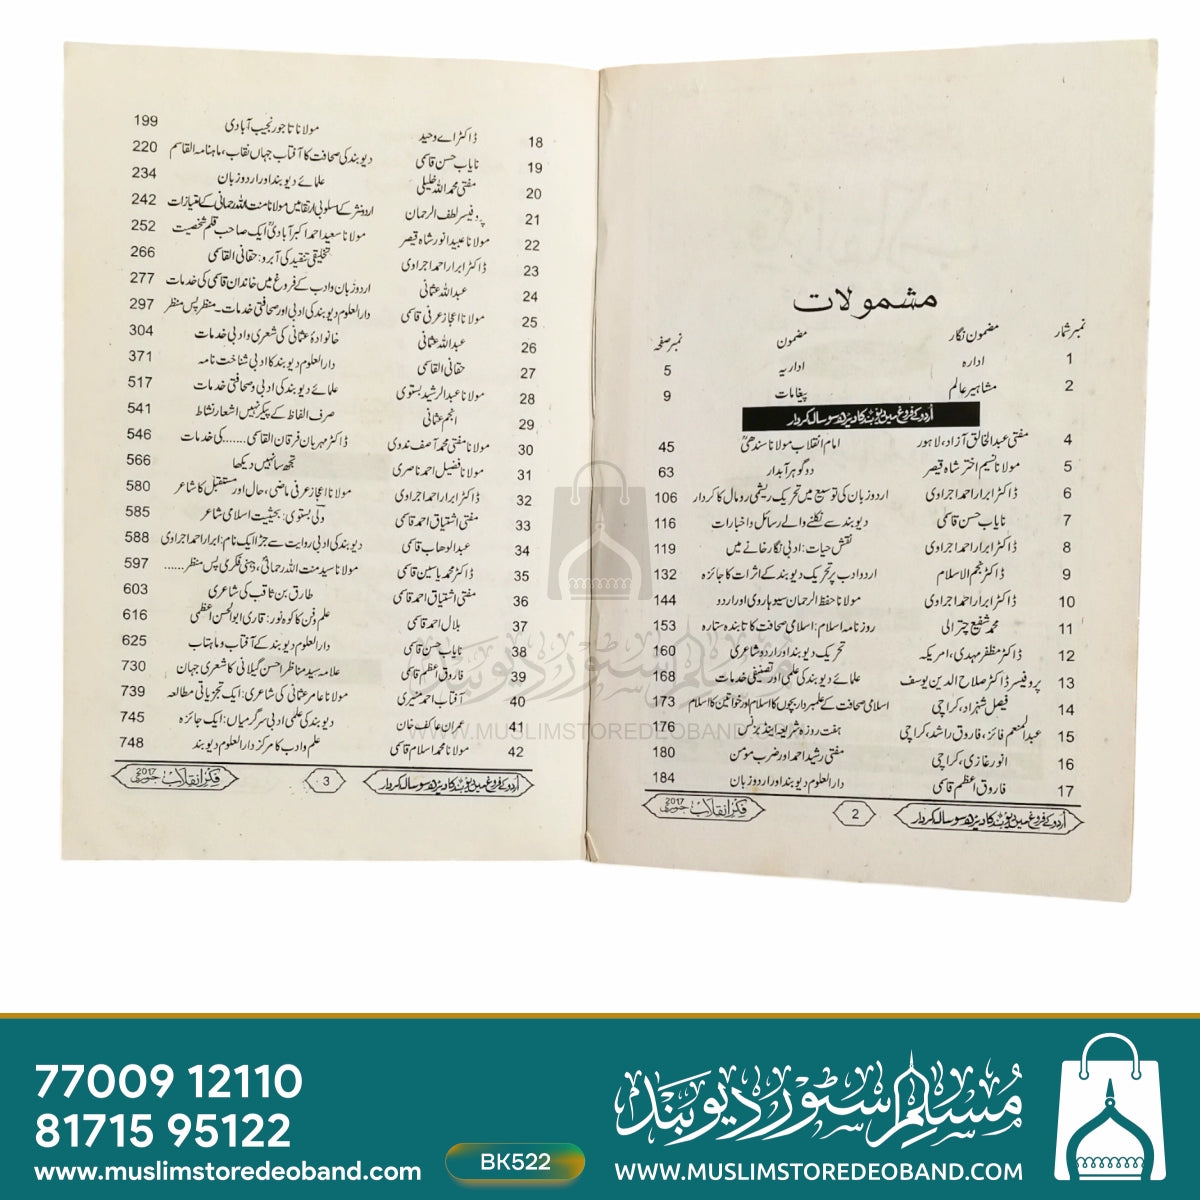 مشمولات
نمبر شمار مضمون نگار مضمون نمبر صفحہ
1 ادارہ اداریہ 5
2 مشاہیر عالم پیغامات 9
اُردو کے فروغ میں دیوبند کا دیڑھ سو سالہ کردار
4 مفتی عبدالخالق آزاد، لاہور امام انقلاب مولانا سندھیؒ 45
5 مولانا نسیم اختر شاہ قیصر دو گوہر آبدار 63
6 ڈاکٹر ابرار احمد اجراوی اردو زبان کی توسیع میں تحریک ریشمی رومال کا کردار 106
7 نایاب حسن قاسمی دیوبند سے نکلنے والے رسائل و اخبارات 116
8 ڈاکٹر ابرار احمد اجراوی نقش حیات: ادبی نگار خانے میں 119
9 ڈاکٹر شمس الاسلام اردو ادب پر تحریک دیوبند کے اثرات کا جائزہ 132
10 ڈاکٹر ابرار احمد اجراوی مولانا حفظ الرحمان سیوہاروی اور اردو 144
11 محمد شفیع چترالی روزنامہ اسلام: اسلامی صحافت کا تابندہ ستارہ 153
12 ڈاکٹر مظفر مہدی، امریکہ تحریک دیوبند اور اردو شاعری 160
13 پروفیسر ڈاکٹر صلاح الدین یوسف علمائے دیوبند کی علمی اور تصنیفی خدمات 168
14 فیصل شہزاد، کراچی اسلامی صحافت کے علمبردار بچوں کا اسلام اور خواتین کا اسلام 173
15 عبدالمنعم فائز، فاروق راشد، کراچی ہفت روزہ شریعہ اینڈ بزنس 176
16 انور غازی، کراچی مفتی رشید احمد اور ضرب مومن 180
17 فاروق اعظم قاسمی دارالعلوم دیوبند اور اردو زبان 184
اُردو کے فروغ میں دیوبند کا دیڑھ سو سالہ کردار 2 فکر انقلاب جنوری 2017
18 ڈاکٹر اے وحید مولانا تاجور نجیب آبادی 199
19 نایاب حسن قاسمی دیوبند کی صحافت کا آفتاب جہاں نقاب، ماہنامہ القاسم 220
20 مفتی محمد اللہ خلیلی علمائے دیوبند اور اردو زبان 234
21 پروفیسر لطف الرحمان اردو نثر کے اسلوبی ارتقا میں مولانا منت اللہ رحمانی کے امتیازات 242
22 مولانا عبید انور شاہ قیصر مولانا سعید احمد اکبر آبادیؒ ایک صاحب قلم شخصیت 252
23 ڈاکٹر ابرار احمد اجراوی تخلیقی تنقید کی آبرو: حقانی القاسمی 266
24 عبداللہ عثمانی اردو زبان و ادب کے فروغ میں خاندان قاسمی کی خدمات 277
25 مولانا اعجاز عرفی قاسمی دارالعلوم دیوبند کی ادبی اور صحافتی خدمات۔ منظر پس منظر 297
26 عبداللہ عثمانی خانوادۂ عثمانی کی شعری و ادبی خدمات 304
27 حقانی القاسمی دارالعلوم دیوبند کا ادبی شناخت نامہ 371
28 مولانا عبدالرشید بستوی علمائے دیوبند کی ادبی و صحافتی خدمات 517
29 انجم عثمانی صرف الفاظ کے پیکر نہیں اشعار نشاط 541
30 مولانا مفتی محمد آصف ندوی ڈاکٹر مہربان فرقان القاسمی ....... کی خدمات 546
31 مولانا فضیل احمد ناصری تجھ سا نہیں دیکھا 566
32 ڈاکٹر ابرار احمد اجراوی مولانا اعجاز عرفی ماضی، حال اور مستقبل کا شاعر 580
33 مفتی اشتیاق احمد قاسمی ولی بستوی: بحیثیت اسلامی شاعر 585
34 عبدالوهاب قاسمی دیوبند کی ادبی روایت سے جڑا ایک نام: ابرار احمد اجراوی 588
35 ڈاکٹر محمد یاسین قاسمی مولانا سید منت اللہ رحمانیؒ، ذہنی فکری پس منظر ...... 597
36 مفتی اشتیاق احمد قاسمی طارق بن ثاقب کی شاعری 603
37 بلال احمد قاسمی علم و فن کا کوہ نور: قاری ابوالحسن اعظمی 616
38 نایاب حسن قاسمی دارالعلوم دیوبند کے آفتاب و ماہتاب 625
39 فاروق اعظم قاسمی علامہ سید مناظر احسن گیلانی کا شعری جہان 730
40 آفتاب احمد منیری مولانا عامر عثمانی کی شاعری: ایک تجزیاتی مطالعہ 739
41 عمران عاکف خان دیوبند کی علمی ادبی سرگرمیاں: ایک جائزہ 745
42 مولانا محمد اسلام قاسمی علم و ادب کا مرکز دارالعلوم دیوبند 748
اُردو کے فروغ میں دیوبند کا دیڑھ سو سالہ کردار 3 فکر انقلاب جنوری 2017
مسلم سٹور دیوبند
WWW.MUSLIMSTOREDEOBAND.COM
77009 12110
81715 95122
www.muslimstoredeoband.com
BK522
مسلم سٹور دیوبند
WWW.MUSLIMSTOREDEOBAND.COM